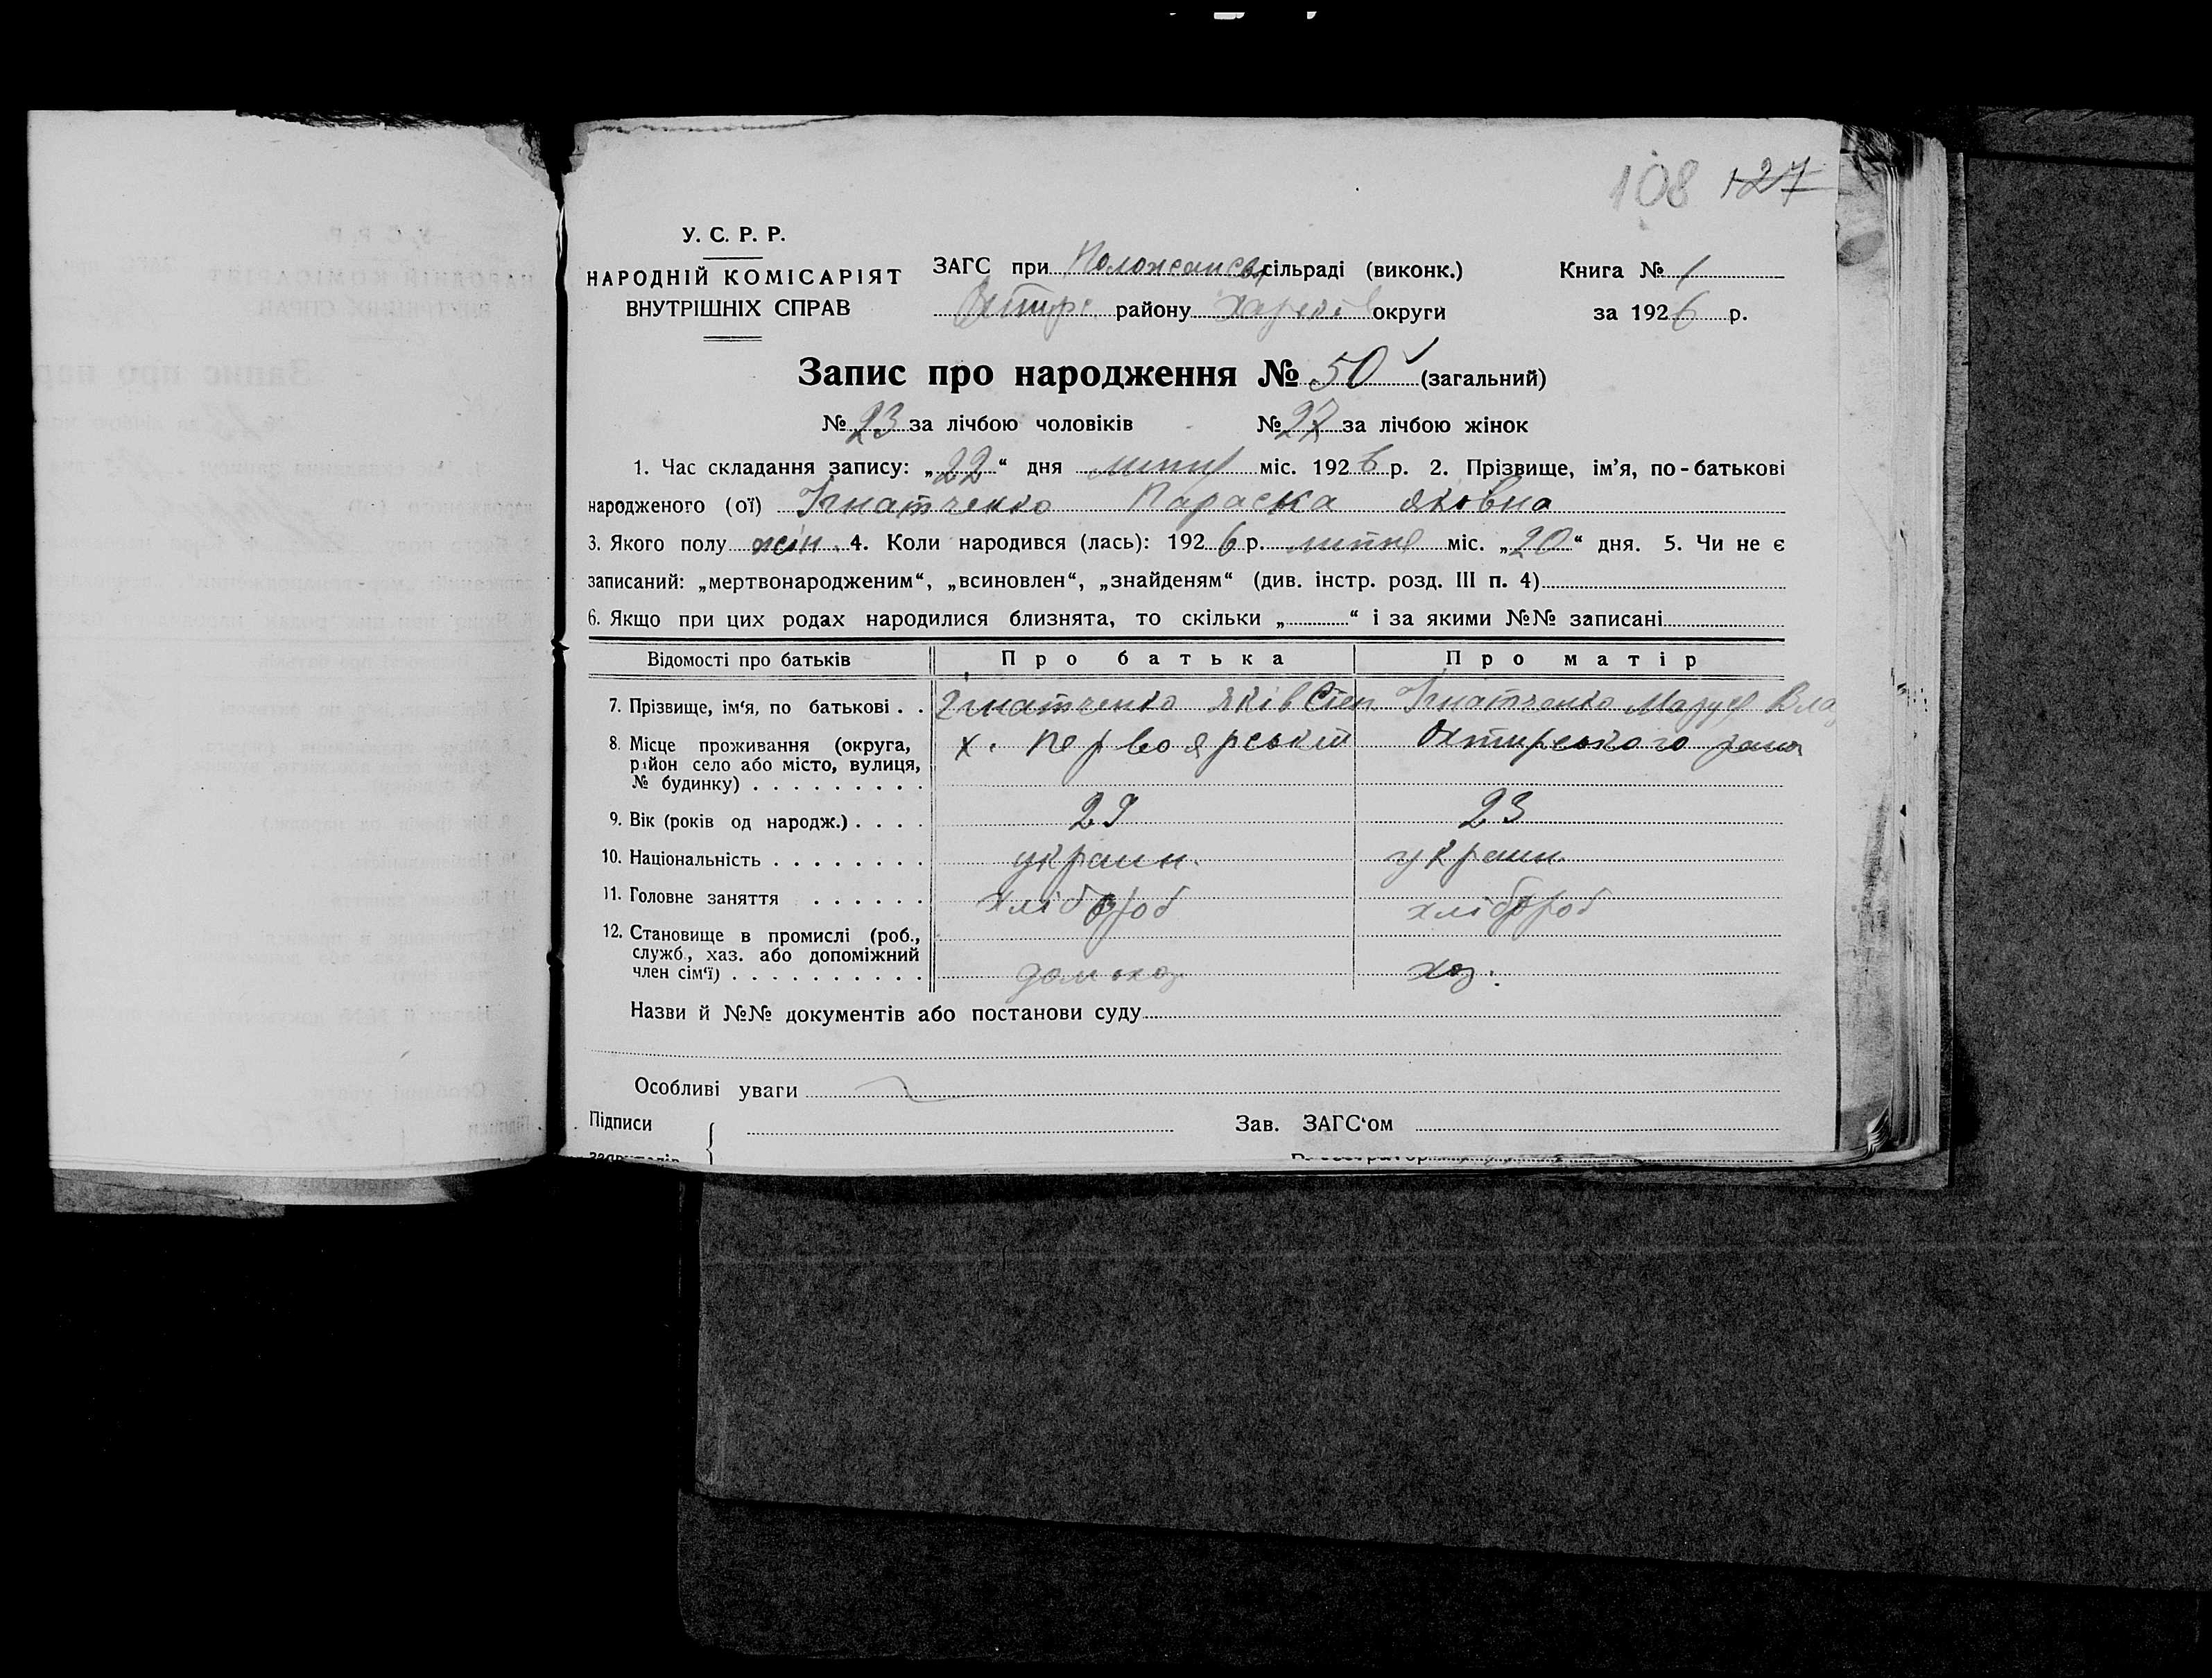 108 127
У. С. Р. Р.
НАРОДНІЙ КОМІСАРІЯТ
ВНУТРІШНІХ СПРАВ
ЗАГС при сільраді (виконк.) Книга № 1
Охтирс. району Харків округи за 1926 р.
Запис про народження № 50 (загальний)
№ 23 за лічбою чоловіків № 27 за лічбою жінок
1. Час складання запису: „22“ дня липня міс. 1926 р. 2. Прізвище, ім’я, по-батькові
народженого (ої) Ігнатченко Параска Яковна
3. Якого полу жін. 4. Коли народився (лась): 1926 р. липня міс. „20“ дня. 5. Чи не є
записаний: „мертвонародженим“, „всиновлен“, „знайденям“ (див. інстр. розд. III п. 4)
6. Якщо при цих родах народилися близнята, то скільки „ “ і за якими №№ записані
Відомості про батьків Про батька Про матір
7. Прізвище, ім‘я, по батькові . . Ігнатченко Яків Степ Ігнатченко Маруся Влас
8. Місце проживання (округа, х. Первоярський Охтирського рана
район село або місто, вулиця,
№ будинку) . . . . . . . . .
9. Вік (років од народж.) . . . . 29 23
10. Національність . . . . . . . . украин. украин.
11. Головне заняття . . . . . . хлібороб хлібороб
12. Становище в промислі (роб.,
служб., хаз. або допоміжний
член сім‘ї) . . . . . . . . . . домохоз хоз.
Назви й №№ документів або постанови суду
Особливі уваги
Підписи Зав. ЗАГС‘ом
заявителів